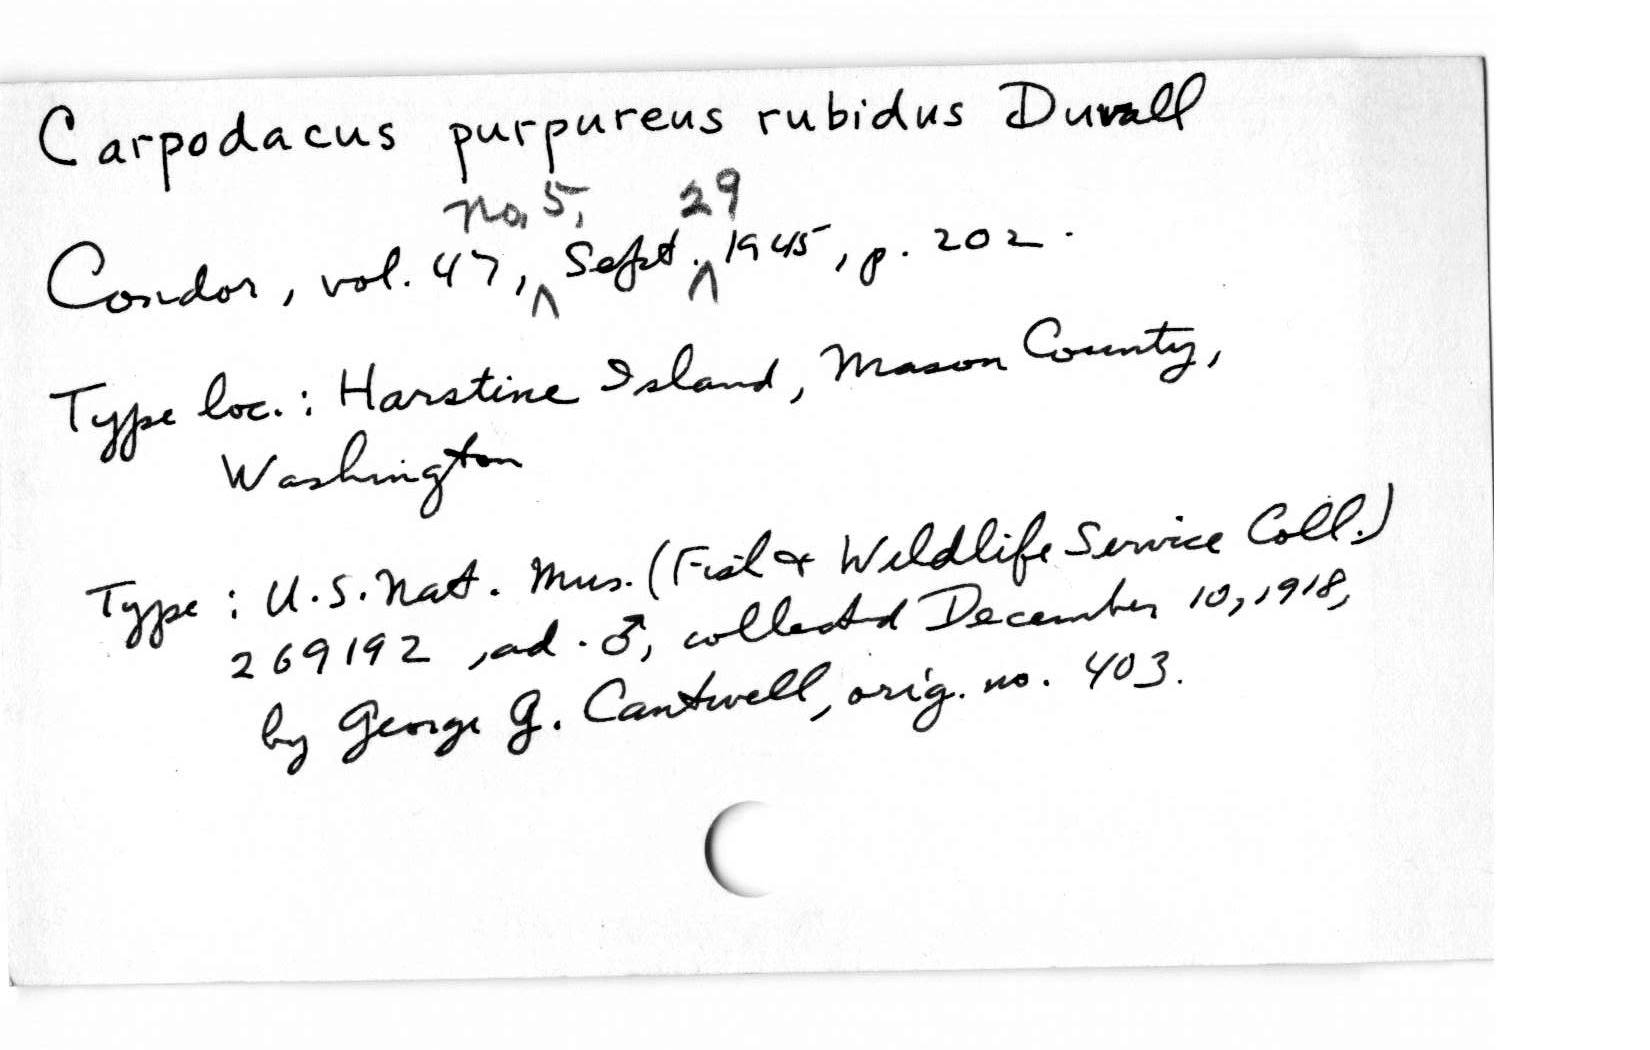 Carpodacus purpureus rubidus Duvall
no. 5, 29
Condor, vol. 47, ^ Sept. ^ 1945, p. 202.
Type loc.: Harstine Island, Mason County,
Washington
Type: U.S. Nat. Mus. (Fish & Wildlife Service Coll.)
269192, ad. ♂, collected December 10, 1918,
by George G. Cantwell, orig. no. 403.